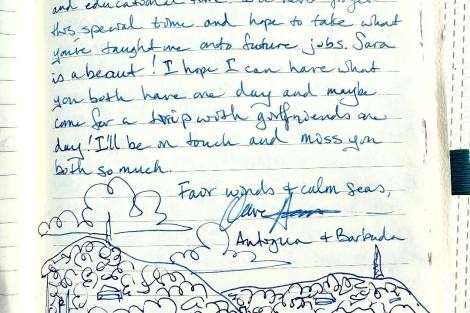 and educational time. I'll never forget
this special time and hope to take what
you've taught me onto future jobs. Sara
is a beaut! I hope I can have what
you both have one day and maybe
come for a trip with girlfriends one
day! I'll be in touch and miss you
both so much.
Fair winds & calm seas,
Dave
Antigua & Barbuda